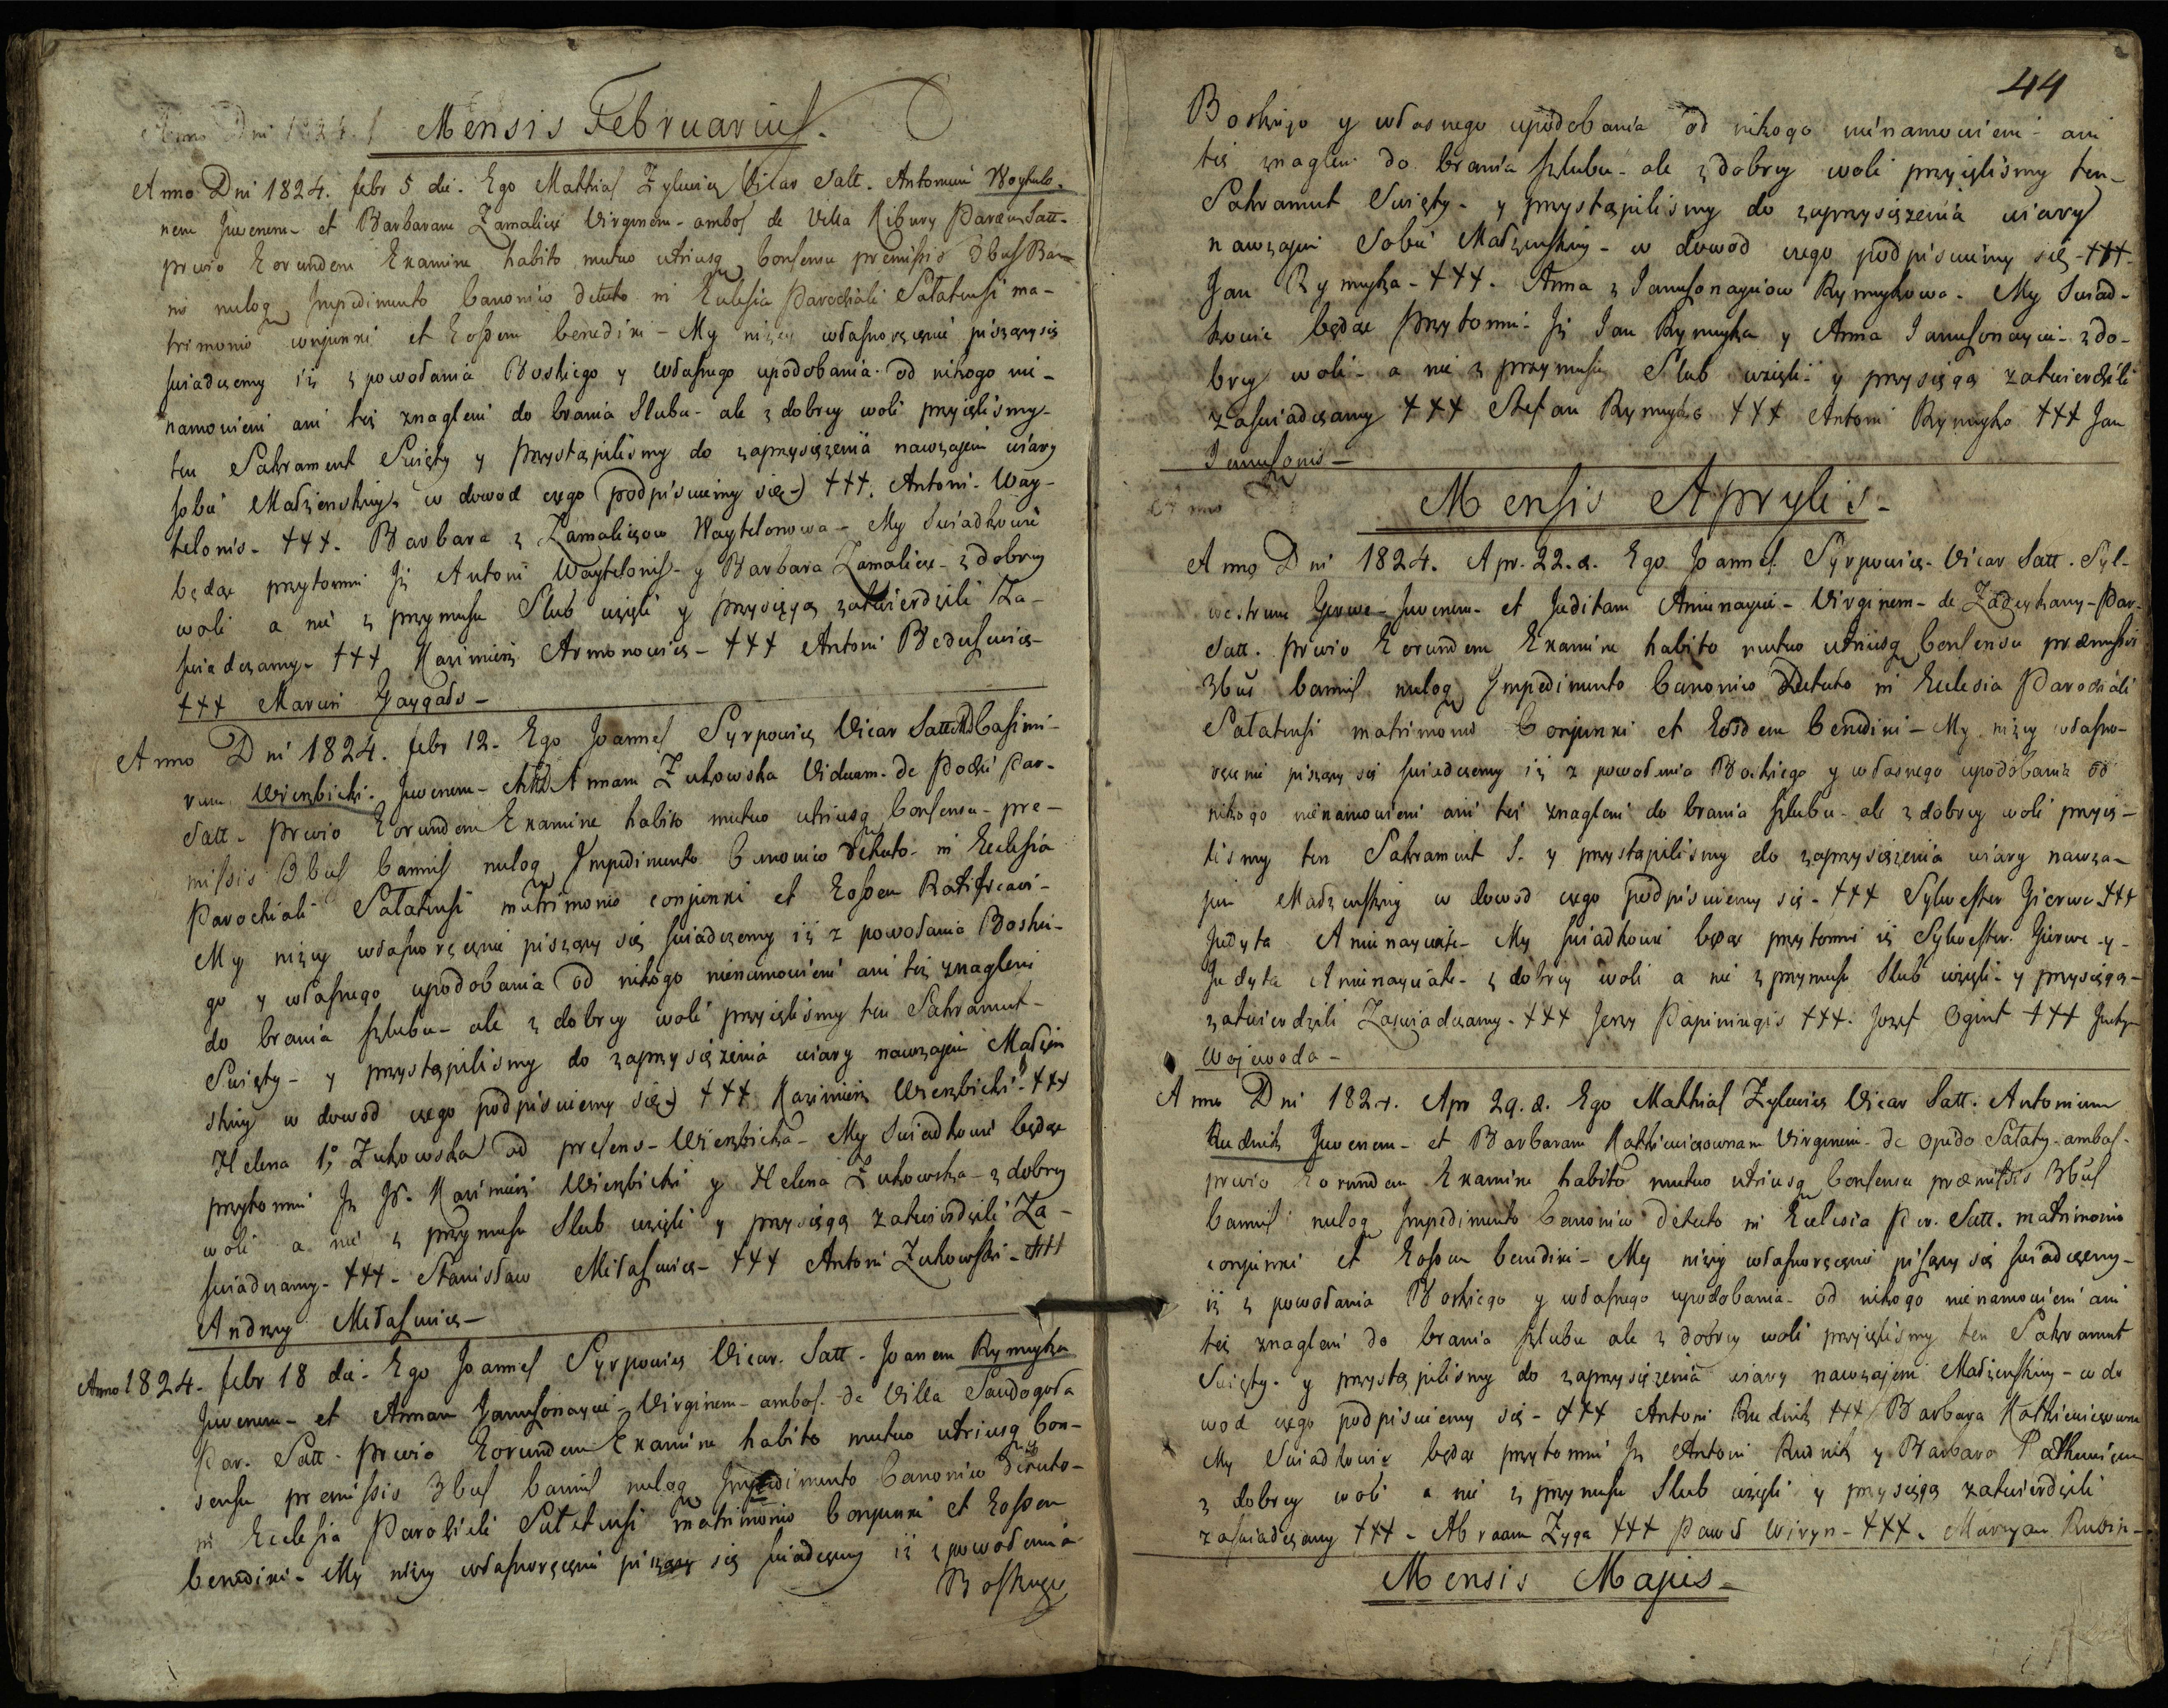 44
Mensis Februarius.
Anno Dni 1824. febr 5 die. Ego Mathias Zylewicz Vicar Satt. Antonium Woytelo-
nem Juvenem - et Barbaram Zamalicz Virginem - ambos de Villa Kibury Paroae Satt-
previo Eorundem Examine habito mutuo utriusq Consensu premissis 3bus Ban-
nis nuloq Impedimento Canonico detecto in Eclesia Parochiali Satatensi ma-
trimonio conjunxi et Eosdem benedixi - My niżey własnoręcznie piszący się
swiadczemy iż z powołania Boskiego y własnego upodobania od nikogo nie-
namowieni ani też znagleni do brania Slubu - ale z dobrey woli przyięlismy
ten Sakrament Swięty y Przystąpilismy do zaprzysiężenia nawzajem wiary
sobie Małżenskiey w dowod czego podpisuiemy się +++. Antoni Way-
telonis - +++. Barbara z Zamaliczow Waytelonowa - My Swiadkowie
będąc przytomni Jż Antoni Waytelonis y Barbara Zamalicz - z dobrey
woli a nie z przymusu Slub wzięli y Przysięgą zatwierdzili Za-
swiadczamy - +++ Kazimierz Armonowicz - +++ Antoni Bedusewicz
+++ Marcin Gaygals -
Anno Dni 1824. febr 12. Ego Joannes Syrpowicz Vicar Satt Casimi-
rum Wierzbicki. Juvenem - et Annam Zukowska Viduam de Par-
Satt - previo Eorundem Examine habito mutuo utriusq Consensu - pre-
missis 3bus bannis nuloq Impedimento Canonico detecto in Eclesia
Parochiali Satatensi matrimonio conjunxi et Eosdem Ratificavi -
My niżey własnoręcznie piszący się swiadczemy iż z powołania Boskie-
go y własnego upodobania od nikogo nienamowieni ani też znagleni
do brania szlubu - ale z dobrey woli przyięlismy ten Sakrament -
Swięty - y przystąpilismy do zaprzysiężenia wiary nawzajem Małżen
skiey w dowod czego podpisuiemy się +++ Kazimierz Wierzbicki - +++
Helena Zukowska ad presens - Wierzbicka - My Swiadkowie będąc
przytomni Jż Kazimierz Wierzbicki y Helena Żukowska - z dobrey
woli a nie z przymusu Slub wzięli y przysięgą zatwierdzili Za-
swiadczamy - +++ - Stanisław Mitaszewicz - +++ Antoni Zukowski - +++
Andrzey Mitaszewicz -
Anno 1824 - febr 18 die. Ego Joannes Syrpowicz Vicar. Satt - Joanem Rymuyka
Juvenem - et Annam - Virginem - ambos de Villa Saudogoła
Par. Satt. previo Eorundem Examine habito mutuo utriusq Con-
sensu premissis 3bus bannis nuloq Impedimento Canonico detecto -
in Eclesia Satatensi matrimonio Conjunxi et Eosdem
benedixi - My niżey własnoręcznie piszący się swiadczemy iż z powołania
Boskiego
Boskiego y własnego upodobania od nikogo nienamowieni ani
też znagleni do brania szlubu - ale z dobrey woli przyięlismy ten -
Sakrament Swięty - y przystąpilismy do zaprzysiężenia wiary
nawzajem Sobie Małżenskiey - w dowod czego podpisuiemy się - +++ -
Jan Rymuyka - +++. Anna z Rymuykowa - My Swiad-
kowie będąc Przytomni Jż Jan Rymuyka y Anna - z do-
brey woli - a nie z przymusu Slub wzięli y przysięgą zatwierdzili
zaswiadczamy +++ Stefan Rymuyko +++ Antoni Rymuyko +++ Jan
Janusonis -
Mensis Aprylis -
Anno Dni 1824. Apr. 22. d. Ego Joannes Syrpowicz - Vicar Satt. Syl-
westrum Gierwe - Juvenem - et Juditam - Virginem - de - Par-
Satt. previo Eorundem Examine habito mutuo utriusq Consensu præmissis
3bus bannis nuloq Impedimento Canonico detecto in Eclesia Parochiali
Satatensi matrimonio Conjunxi et Eosdem benedixi - My niżey własno-
ręcznie piszący się swiadczemy iż z powołania Boskiego y własnego upodobania od
nikogo nienamowieni ani też znagleni do brania szlubu - ale z dobrey woli przyię-
lismy ten Sakrament S. y przystąpilismy do zaprzysiężenia wiary nawza-
jem Małżenskiey w dowod czego podpisuiemy się - +++ Sylwester Gierwe +++
Judyta - My swiadkowie będąc przytomni iż Sylwester Gierwe - y -
Judyta - z dobrey woli a nie z przymusu Slub wzięli - y przysięgą -
zatwierdzili Zaswiadczamy - +++ Jerzy Papiningis +++. Jozef Ogint +++
Wojewoda -
Anno Dni 1824. Apr 29. d. Ego Mathias Zylewicz Vicar Satt. Antonium
Rudnik Juvenem - et Barbaram Virginem - de opido Sataty - ambos -
previo Eorundem Examine habito mutuo utriusq Consensu præmissis 3bus
bannis nuloq Impedimento Canonico detecto in Eclesia Par. Satt. matrimonio
conjunxi et Eosdem benedixi - My niżey własnoręcznie piszący się swiadczemy -
iż z powołania Boskiego y własnego upodobania - od nikogo nienamowieni ani
też znagleni do brania szlubu ale z dobrey woli przyięlismy ten Sakrament
Swięty - y przystąpilismy do zaprzysiężenia wiary nawzajem Małżenskiey - w do
wod czego podpisuiemy się - +++ Antoni Rudnik +++ Barbara
My Swiadkowie będąc przytomni Jż Antoni Rudnik y Barbara
z dobrey woli a nie z przymusu Slub wzięli y przysięgą zatwierdzili
zaswiadczamy +++ - Abraam Zyga +++ Paweł Wiryn - +++. Maryan Rubin -
Mensis Majus -